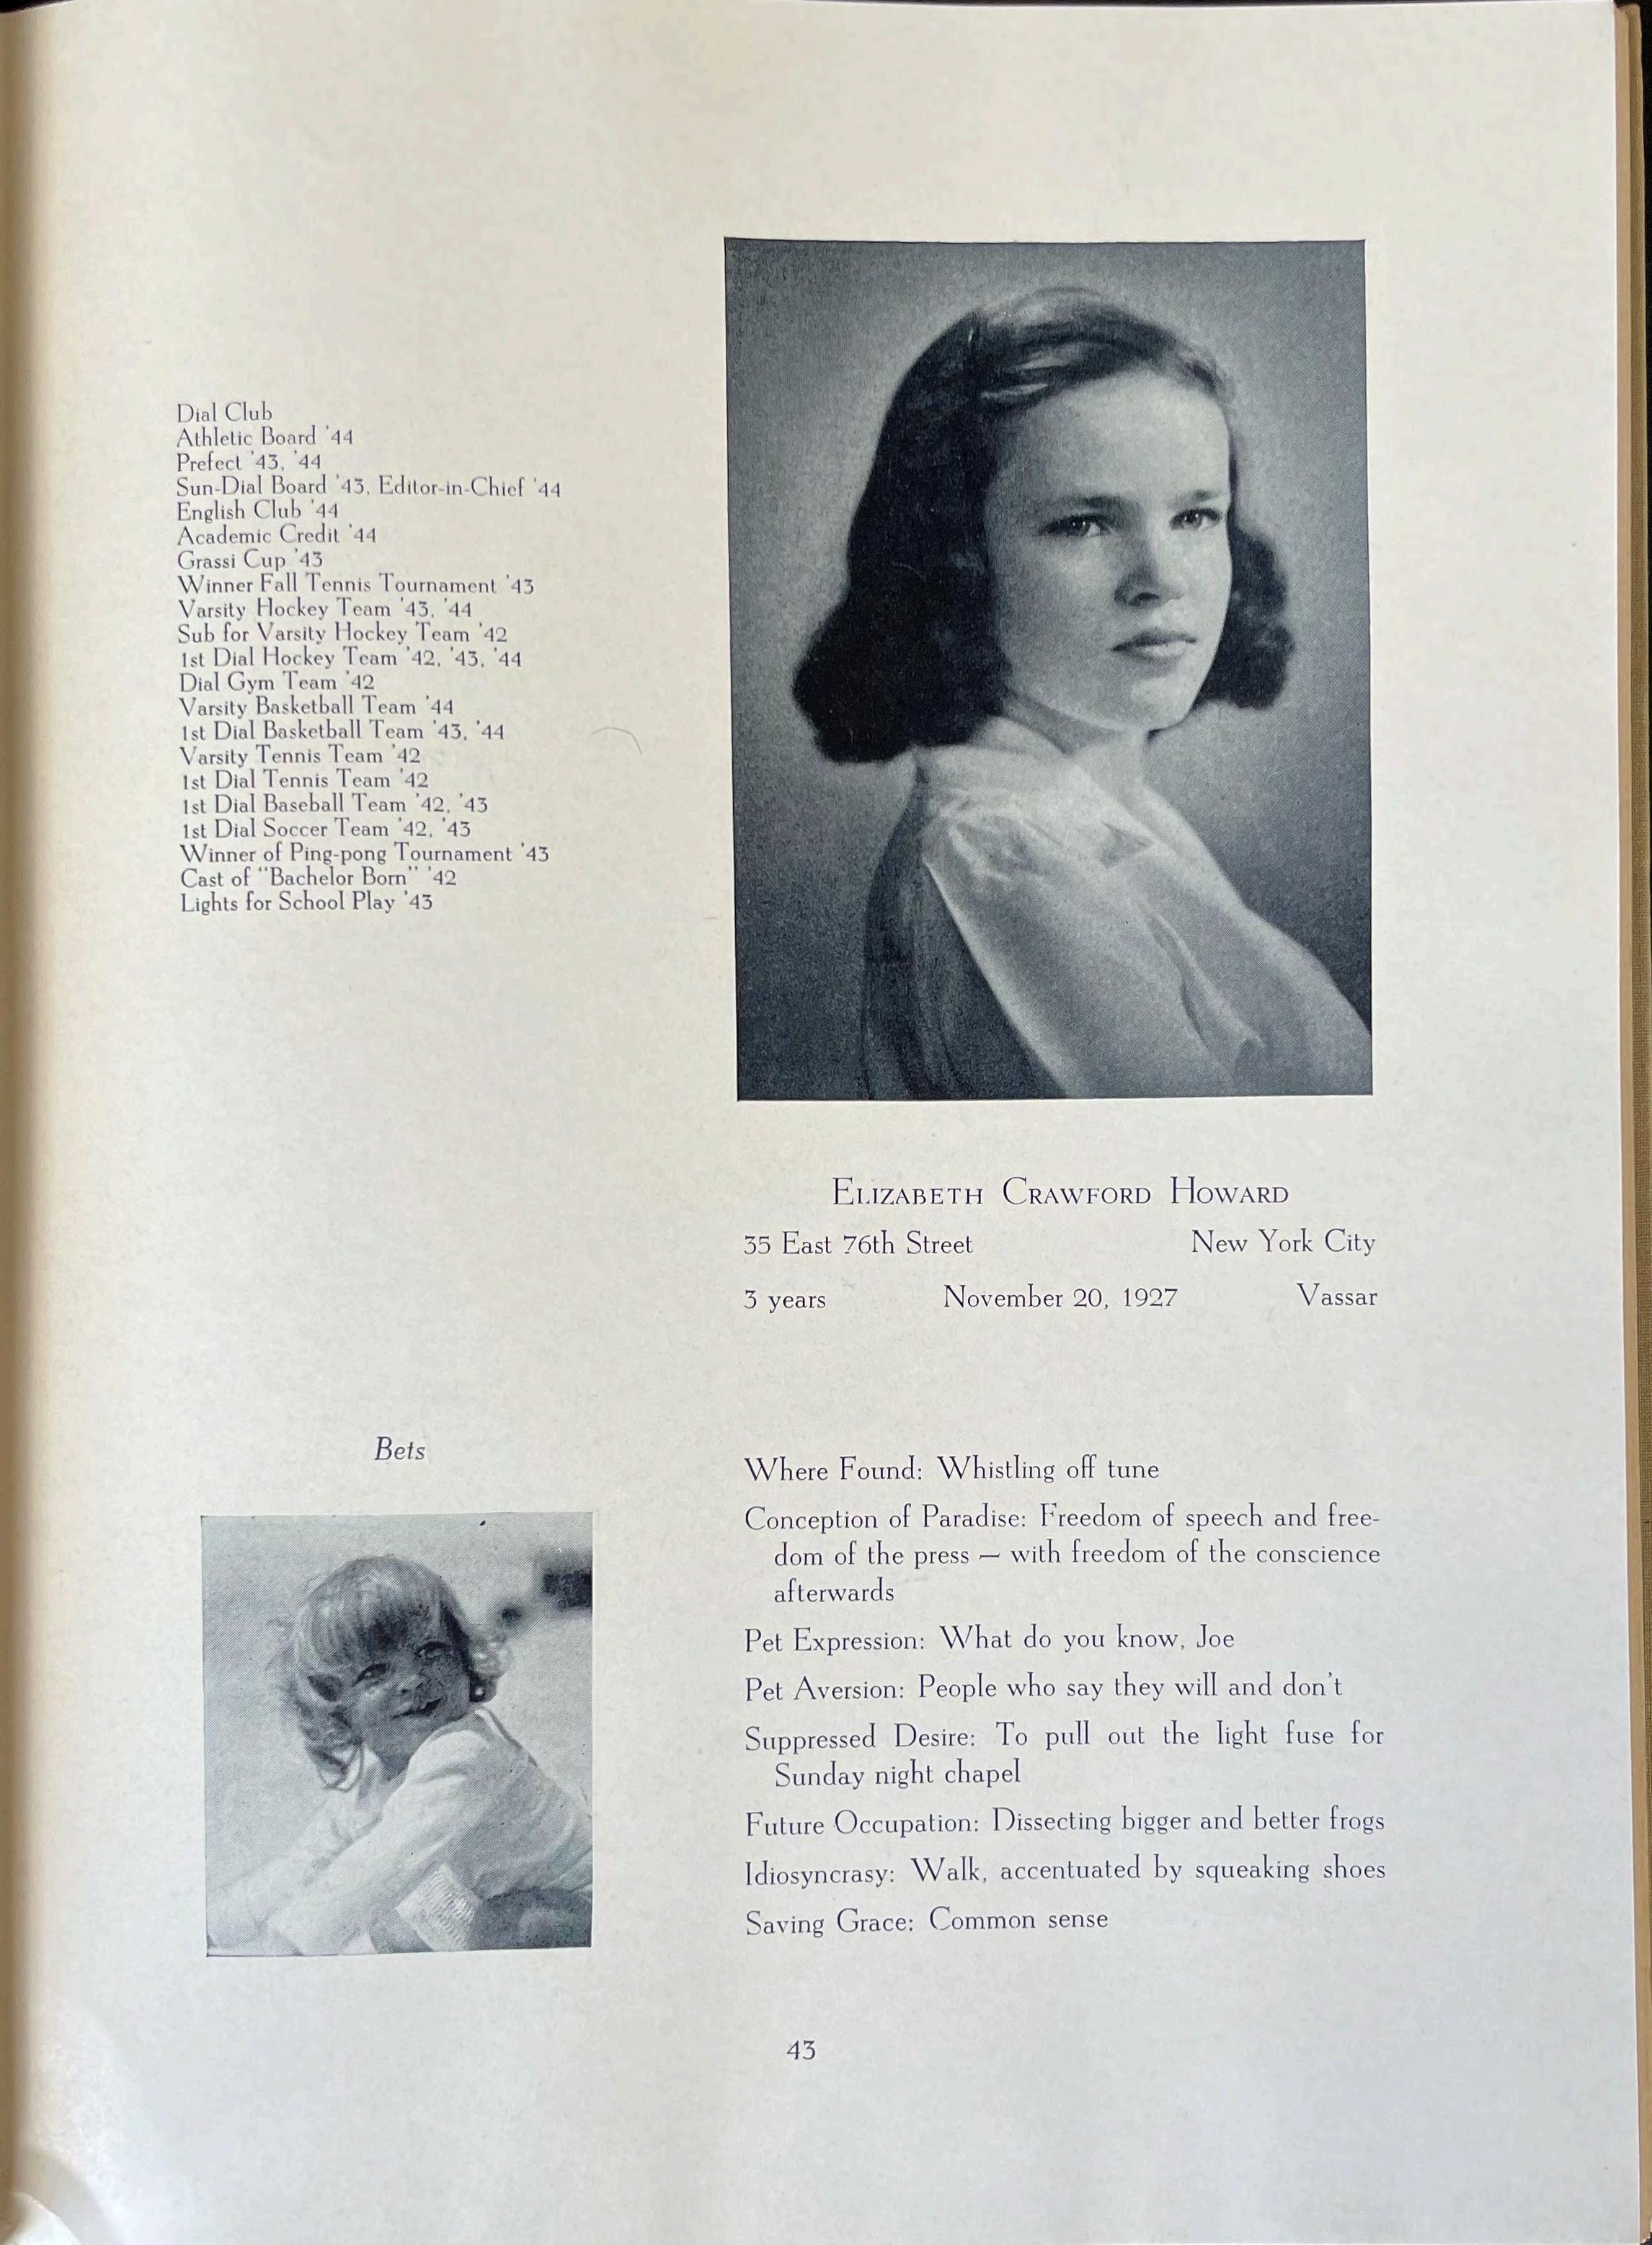 Dial Club
Athletic Board '44
Prefect '43, '44
Sun-Dial Board '43, Editor-in-Chief '44
English Club '44
Academic Credit '44
Grassi Cup '43
Winner Fall Tennis Tournament '43
Varsity Hockey Team '43, '44
Sub for Varsity Hockey Team '42
1st Dial Hockey Team '42, '43, '44
Dial Gym Team '42
Varsity Basketball Team '44
1st Dial Basketball Team '43, '44
Varsity Tennis Team '42
1st Dial Tennis Team '42
1st Dial Baseball Team '42, '43
1st Dial Soccer Team '42, '43
Winner of Ping-pong Tournament '43
Cast of "Bachelor Born" '42
Lights for School Play '43
Elizabeth Crawford Howard
35 East 76th Street New York City
3 years November 20, 1927 Vassar
Bets
Where Found: Whistling off tune
Conception of Paradise: Freedom of speech and free-
dom of the press — with freedom of the conscience
afterwards
Pet Expression: What do you know, Joe
Pet Aversion: People who say they will and don't
Suppressed Desire: To pull out the light fuse for
Sunday night chapel
Future Occupation: Dissecting bigger and better frogs
Idiosyncrasy: Walk, accentuated by squeaking shoes
Saving Grace: Common sense
43